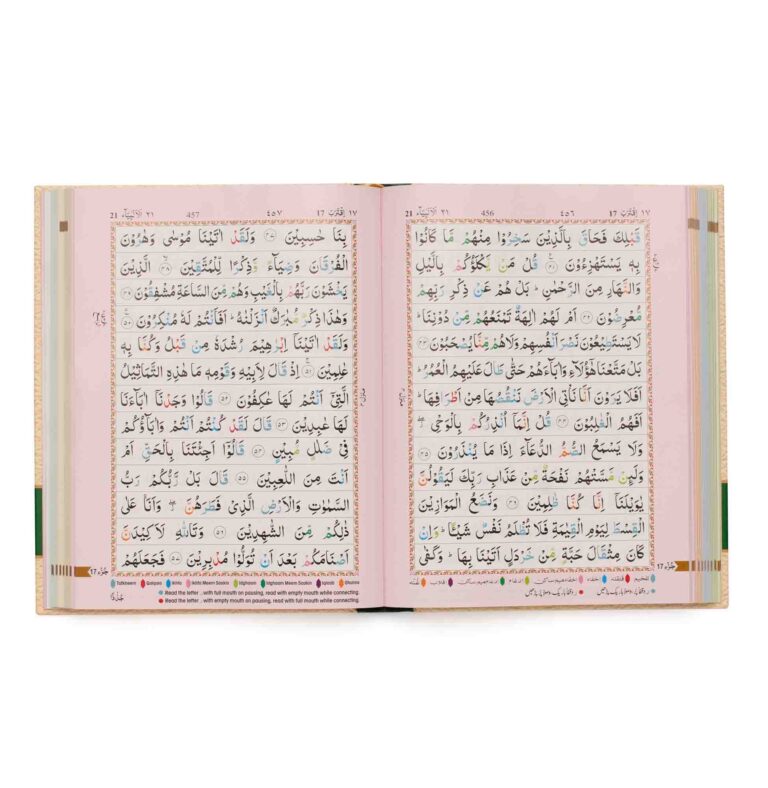 ١٧ اِقْتَرَبَ 17 ٤٥٦ 456 ٢١ اَلْاَنْۢبِيَآء 21
قَبْلِكَ فَحَاقَ بِالَّذِيْنَ سَخِرُوْا مِنْهُمْ مَّا كَانُوْا
بِهٖ يَسْتَهْزِءُوْنَ ۝٤١ قُلْ مَنْ يَّكْلَؤُكُمْ بِالَّيْلِ
وَالنَّهَارِ مِنَ الرَّحْمٰنِ ؕ بَلْ هُمْ عَنْ ذِكْرِ رَبِّهِمْ
مُّعْرِضُوْنَ ۝٤٢ اَمْ لَهُمْ اٰلِهَةٌ تَمْنَعُهُمْ مِّنْ دُوْنِنَا ؕ
لَا يَسْتَطِيْعُوْنَ نَصْرَ اَنْفُسِهِمْ وَلَا هُمْ مِّنَّا يُصْحَبُوْنَ ۝٤٣
بَلْ مَتَّعْنَا هٰٓؤُلَآءِ وَاٰبَآءَهُمْ حَتّٰى طَالَ عَلَيْهِمُ الْعُمُرُ ؕ
اَفَلَا يَرَوْنَ اَنَّا نَاْتِى الْاَرْضَ نَنْقُصُهَا مِنْ اَطْرَافِهَا ؕ
اَفَهُمُ الْغٰلِبُوْنَ ۝٤٤ قُلْ اِنَّمَآ اُنْذِرُكُمْ بِالْوَحْىِ ۖ
وَلَا يَسْمَعُ الصُّمُّ الدُّعَآءَ اِذَا مَا يُنْذَرُوْنَ ۝٤٥
وَلَئِنْ مَّسَّتْهُمْ نَفْحَةٌ مِّنْ عَذَابِ رَبِّكَ لَيَقُوْلُنَّ
يٰوَيْلَنَآ اِنَّا كُنَّا ظٰلِمِيْنَ ۝٤٦ وَنَضَعُ الْمَوَازِيْنَ
الْقِسْطَ لِيَوْمِ الْقِيٰمَةِ فَلَا تُظْلَمُ نَفْسٌ شَيْـًٔا ؕ وَاِنْ
كَانَ مِثْقَالَ حَبَّةٍ مِّنْ خَرْدَلٍ اَتَيْنَا بِهَا ؕ وَكَفٰى
جُزْء 17
١٧ اِقْتَرَبَ 17 ٤٥٧ 457 ٢١ اَلْاَنْۢبِيَآء 21
بِنَا حٰسِبِيْنَ ۝٤٧ وَلَقَدْ اٰتَيْنَا مُوْسٰى وَهٰرُوْنَ
الْفُرْقَانَ وَضِيَآءً وَّذِكْرًا لِّلْمُتَّقِيْنَ ۝٤٨ الَّذِيْنَ
يَخْشَوْنَ رَبَّهُمْ بِالْغَيْبِ وَهُمْ مِّنَ السَّاعَةِ مُشْفِقُوْنَ ۝٤٩
وَهٰذَا ذِكْرٌ مُّبٰرَكٌ اَنْزَلْنٰهُ ؕ اَفَاَنْتُمْ لَهٗ مُنْكِرُوْنَ ۝٥٠
وَلَقَدْ اٰتَيْنَآ اِبْرٰهِيْمَ رُشْدَهٗ مِنْ قَبْلُ وَكُنَّا بِهٖ
عٰلِمِيْنَ ۝٥١ اِذْ قَالَ لِاَبِيْهِ وَقَوْمِهٖ مَا هٰذِهِ التَّمَاثِيْلُ
الَّتِىْٓ اَنْتُمْ لَهَا عٰكِفُوْنَ ۝٥٢ قَالُوْا وَجَدْنَآ اٰبَآءَنَا
لَهَا عٰبِدِيْنَ ۝٥٣ قَالَ لَقَدْ كُنْتُمْ اَنْتُمْ وَاٰبَآؤُكُمْ
فِىْ ضَلٰلٍ مُّبِيْنٍ ۝٥٤ قَالُوْٓا اَجِئْتَنَا بِالْحَقِّ اَمْ
اَنْتَ مِنَ اللّٰعِبِيْنَ ۝٥٥ قَالَ بَلْ رَّبُّكُمْ رَبُّ
السَّمٰوٰتِ وَالْاَرْضِ الَّذِىْ فَطَرَهُنَّ ۖ وَاَنَا عَلٰى
ذٰلِكُمْ مِّنَ الشّٰهِدِيْنَ ۝٥٦ وَتَاللّٰهِ لَاَكِيْدَنَّ
اَصْنَامَكُمْ بَعْدَ اَنْ تُوَلُّوْا مُدْبِرِيْنَ ۝٥٧ فَجَعَلَهُمْ
جُزْء 17
Tafkheem Qalqala Ikhfa Ikhfa Meem Saakin Idghaam Idghaam Meem Saakin Iqlaab Ghunna
Read the letter , with full mouth on pausing, read with empty mouth while connecting.
Read the letter , with empty mouth on pausing, read with full mouth while connecting.